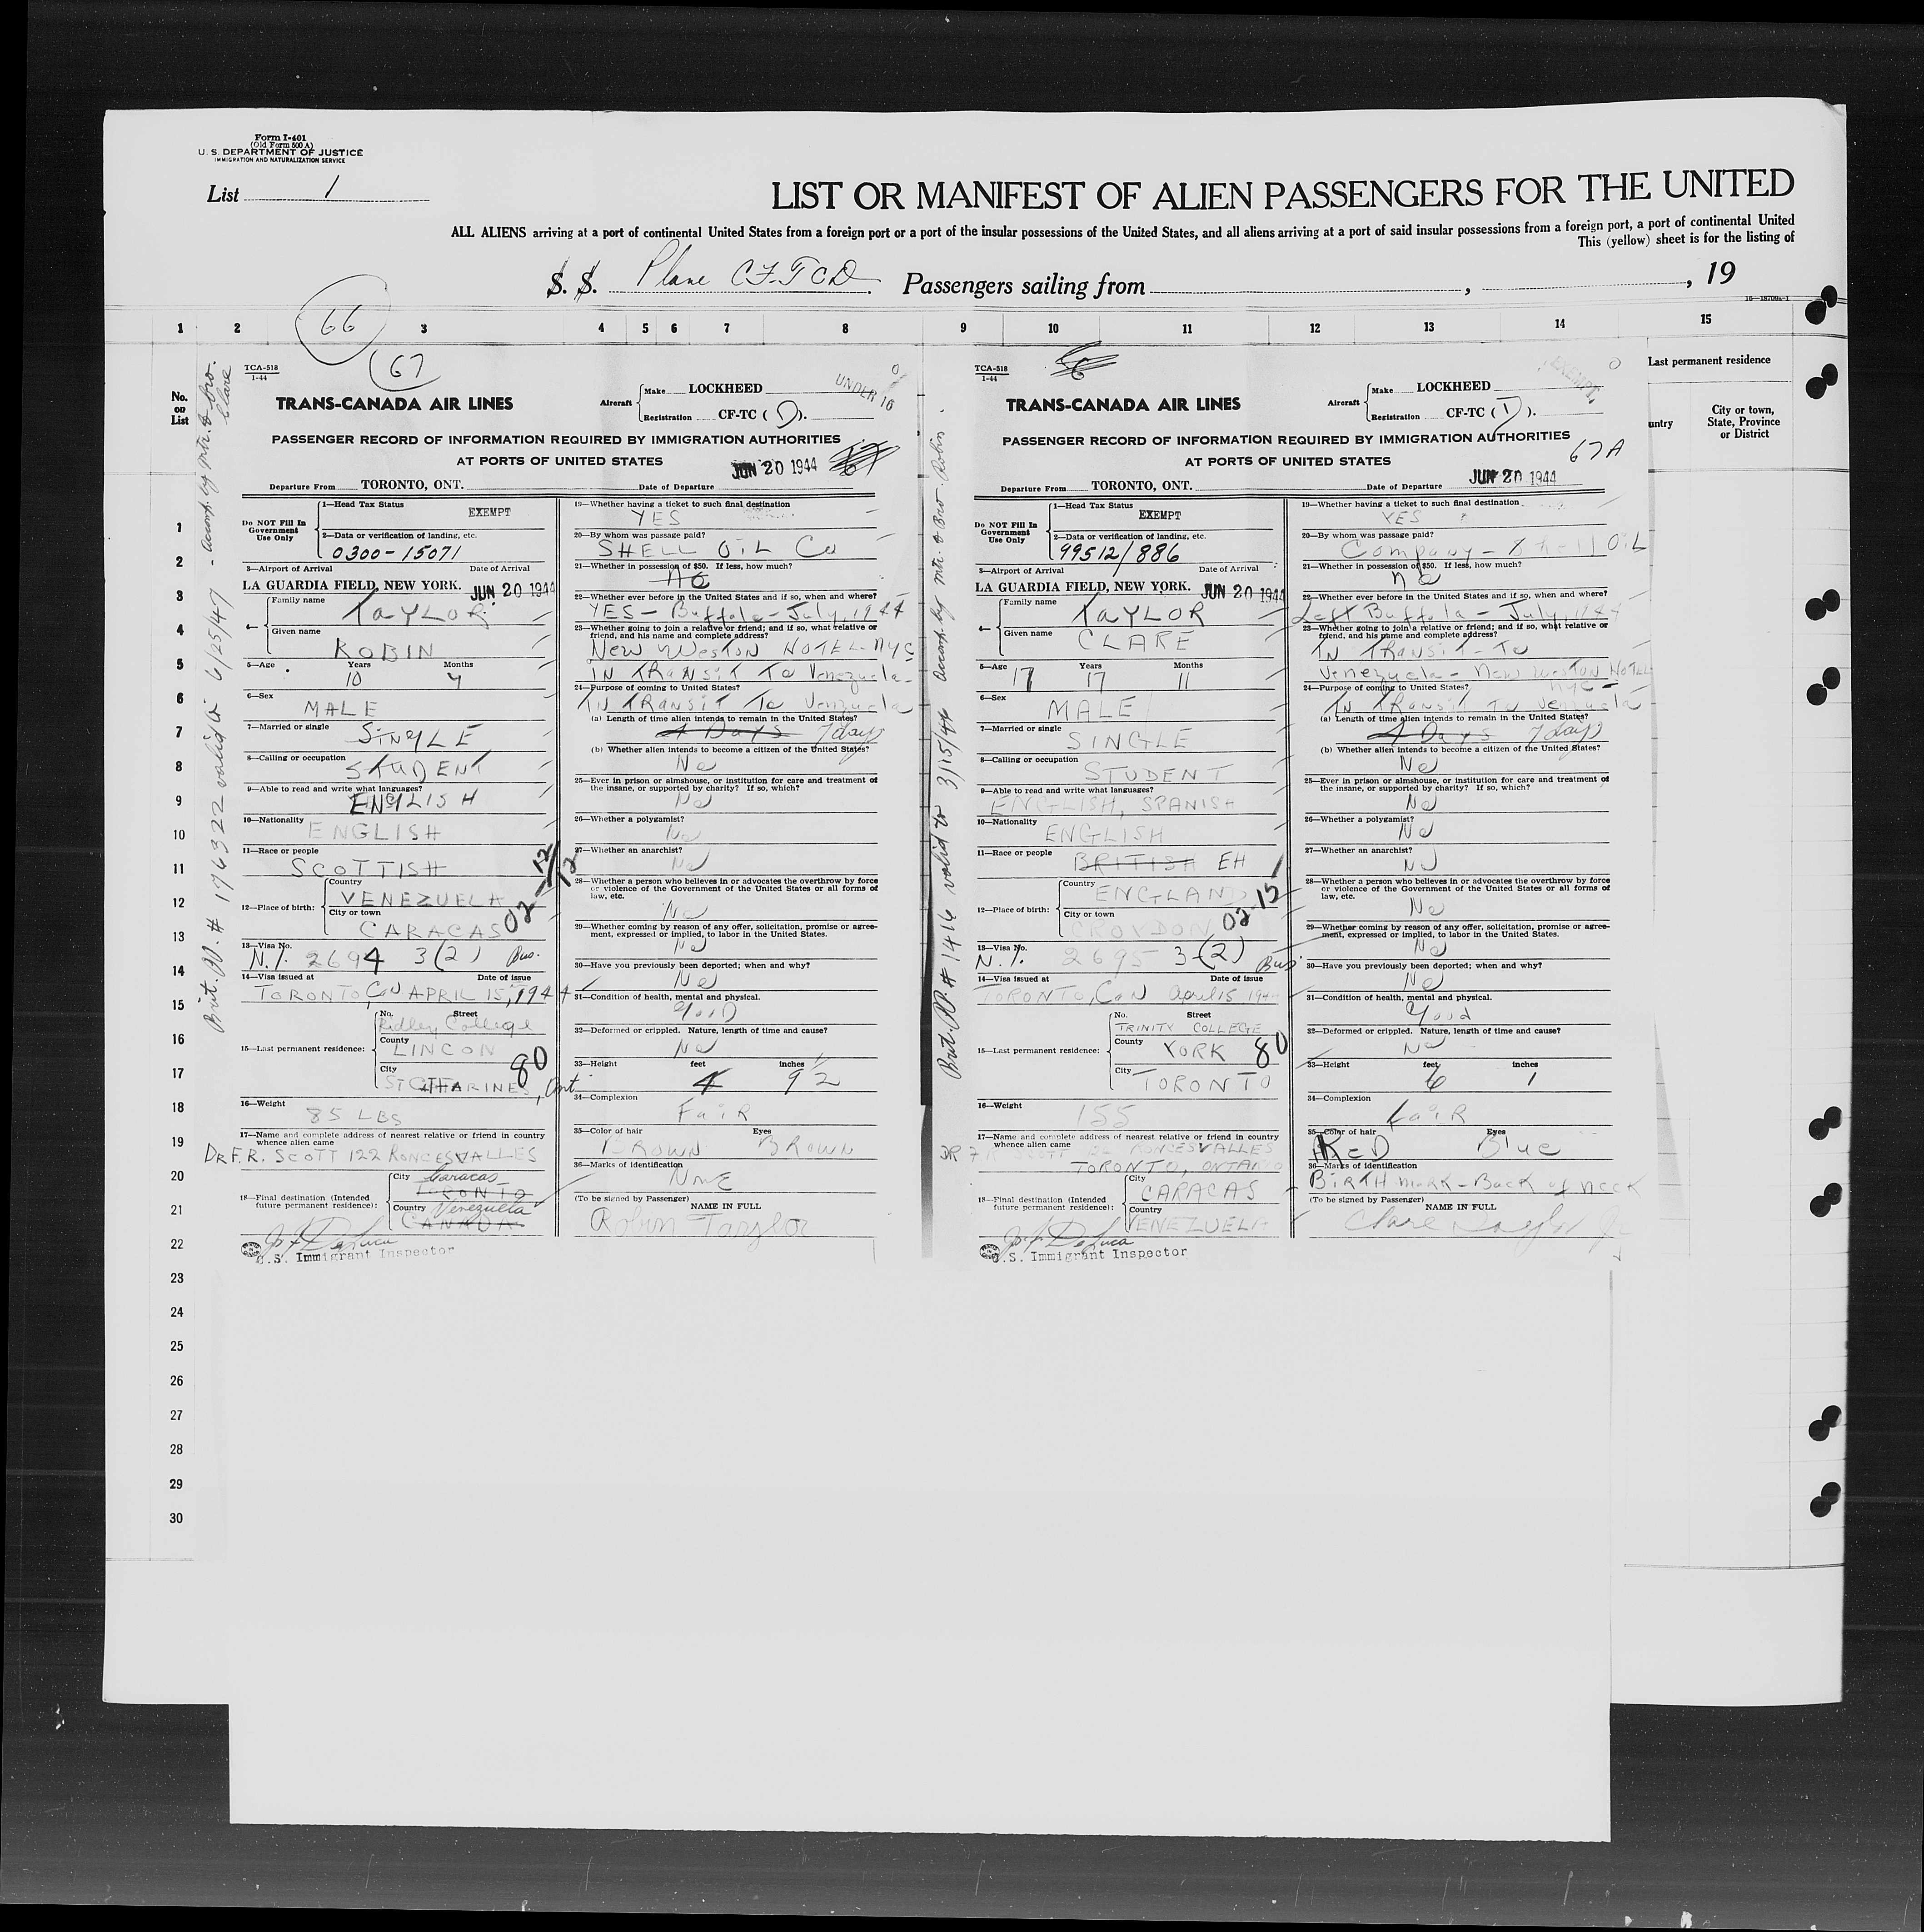 Form I-401
(Old Form 500 A)
U. S. DEPARTMENT OF JUSTICE
IMMIGRATION AND NATURALIZATION SERVICE
List 1
LIST OR MANIFEST OF ALIEN PASSENGERS FOR THE UNITED
ALL ALIENS arriving at a port of continental United States from a foreign port or a port of the insular possessions of the United States, and all aliens arriving at a port of said insular possessions from a foreign port, a port of continental United
This (yellow) sheet is for the listing of
S. S. Plane CF-TCD Passengers sailing from , , 19
16—18709a-1
1 2 3 4 5 6 7 8 9 10 11 12 13 14 15
66
No. on List
1
2
3
4
5
6
7
8
9
10
11
12
13
14
15
16
17
18
19
20
21
22
23
24
25
26
27
28
29
30
Last permanent residence
untry
City or town, State, Province or District
Brit. PP. # 176322 valid to 6/25/47 - Accomp. by mtr. & bro. Clare
TCA-518
1-44
67
TRANS-CANADA AIR LINES
Aircraft
Make LOCKHEED
Registration CF-TC ( D ).
UNDER 16
PASSENGER RECORD OF INFORMATION REQUIRED BY IMMIGRATION AUTHORITIES
AT PORTS OF UNITED STATES
JUN 20 1944
Departure From TORONTO, ONT. Date of Departure
Do NOT Fill In Government Use Only
1—Head Tax Status
EXEMPT
2—Data or verification of landing, etc.
0300-15071
3—Airport of Arrival Date of Arrival
LA GUARDIA FIELD, NEW YORK. JUN 20 1944
4—
Family name
TAYLOR
Given name
ROBIN
5—Age Years Months
10 4
6—Sex
MALE
7—Married or single
SINGLE
8—Calling or occupation
STUDENT
9—Able to read and write what languages?
ENGLISH
10—Nationality
ENGLISH
11—Race or people
SCOTTISH
12—Place of birth:
Country
VENEZUELA
City or town
CARACAS
02-12/12
13—Visa No.
N.I. 2694 3(2) Bus.
14—Visa issued at Date of issue
TORONTO, CAN APRIL 15, 1944
15—Last permanent residence:
No. Street
Ridley College
County
LINCON
City
ST CATHARINES, Ont
80
16—Weight
85 LBS
17—Name and complete address of nearest relative or friend in country whence alien came
DR F. R. SCOTT 122 RONCESVALLES
18—Final destination (Intended future permanent residence):
City
Caracas
TORONTO
Country
Venezuela
CANADA
J. J. DeLuca
U.S. Immigrant Inspector
19—Whether having a ticket to such final destination
YES
20—By whom was passage paid?
SHELL OIL Co
21—Whether in possession of $50. If less, how much?
NO
22—Whether ever before in the United States and if so, when and where?
YES - Buffalo - July, 1944
23—Whether going to join a relative or friend; and if so, what relative or friend, and his name and complete address?
New Weston HOTEL - NYC
IN TRANSIT To Venezuela -
24—Purpose of coming to United States?
IN TRANSIT To Venzuela
(a) Length of time alien intends to remain in the United States?
4 Days 7 days
(b) Whether alien intends to become a citizen of the United States?
No
25—Ever in prison or almshouse, or institution for care and treatment of the insane, or supported by charity? If so, which?
No
26—Whether a polygamist?
No
27—Whether an anarchist?
No
28—Whether a person who believes in or advocates the overthrow by force or violence of the Government of the United States or all forms of law, etc.
No
29—Whether coming by reason of any offer, solicitation, promise or agreement, expressed or implied, to labor in the United States.
No
30—Have you previously been deported; when and why?
No
31—Condition of health, mental and physical.
Good
32—Deformed or crippled. Nature, length of time and cause?
No
33—Height feet inches
4 9 1/2
34—Complexion
FAIR
35—Color of hair Eyes
BROWN BROWN
36—Marks of identification
NONE
(To be signed by Passenger) NAME IN FULL
Robin Taylor
Brit. PP. # 1416 valid to 3/15/46 Accomp. by mtr. & Bro. Robin
TCA-518
1-44
TRANS-CANADA AIR LINES
Aircraft
Make LOCKHEED
Registration CF-TC ( D ).
EXEMPT
PASSENGER RECORD OF INFORMATION REQUIRED BY IMMIGRATION AUTHORITIES
67A
AT PORTS OF UNITED STATES
JUN 20 1944
Departure From TORONTO, ONT. Date of Departure
Do NOT Fill In Government Use Only
1—Head Tax Status
EXEMPT
2—Data or verification of landing, etc.
99512/886
3—Airport of Arrival Date of Arrival
LA GUARDIA FIELD, NEW YORK. JUN 20 1944
4—
Family name
TAYLOR
Given name
CLARE
5—Age Years Months
17 17 11
6—Sex
MALE
7—Married or single
SINGLE
8—Calling or occupation
STUDENT
9—Able to read and write what languages?
ENGLISH, SPANISH
10—Nationality
ENGLISH
11—Race or people
BRITISH EH
12—Place of birth:
Country
ENGLAND
City or town
CROYDON
02-15
13—Visa No.
N.I. 2695 3-(2) Bus
14—Visa issued at Date of issue
TORONTO, CAN April 15 1944
15—Last permanent residence:
No. Street
TRINITY COLLEGE
County
YORK
City
TORONTO
80
16—Weight
155
17—Name and complete address of nearest relative or friend in country whence alien came
DR F R SCOTT RONCESVALLES
TORONTO, ONTARIO
18—Final destination (Intended future permanent residence):
City
CARACAS
Country
VENEZUELA
J. J. DeLuca
U.S. Immigrant Inspector
19—Whether having a ticket to such final destination
YES
20—By whom was passage paid?
Company - Shell OIL
21—Whether in possession of $50. If less, how much?
no
22—Whether ever before in the United States and if so, when and where?
Left Buffalo - July, 1944
23—Whether going to join a relative or friend; and if so, what relative or friend, and his name and complete address?
IN TRANSIT - To
Venezuela - New Weston HOTEL
NYC -
24—Purpose of coming to United States?
IN TRANSIT To Venezuela
(a) Length of time alien intends to remain in the United States?
4 Days 7 days
(b) Whether alien intends to become a citizen of the United States?
No
25—Ever in prison or almshouse, or institution for care and treatment of the insane, or supported by charity? If so, which?
No
26—Whether a polygamist?
No
27—Whether an anarchist?
No
28—Whether a person who believes in or advocates the overthrow by force or violence of the Government of the United States or all forms of law, etc.
No
29—Whether coming by reason of any offer, solicitation, promise or agreement, expressed or implied, to labor in the United States.
No
30—Have you previously been deported; when and why?
No
31—Condition of health, mental and physical.
Good
32—Deformed or crippled. Nature, length of time and cause?
No
33—Height feet inches
6 1
34—Complexion
FaiR
35—Color of hair Eyes
ReD Blue
36—Marks of identification
BIRTH mark - Back of neck
(To be signed by Passenger) NAME IN FULL
Clare Taylor